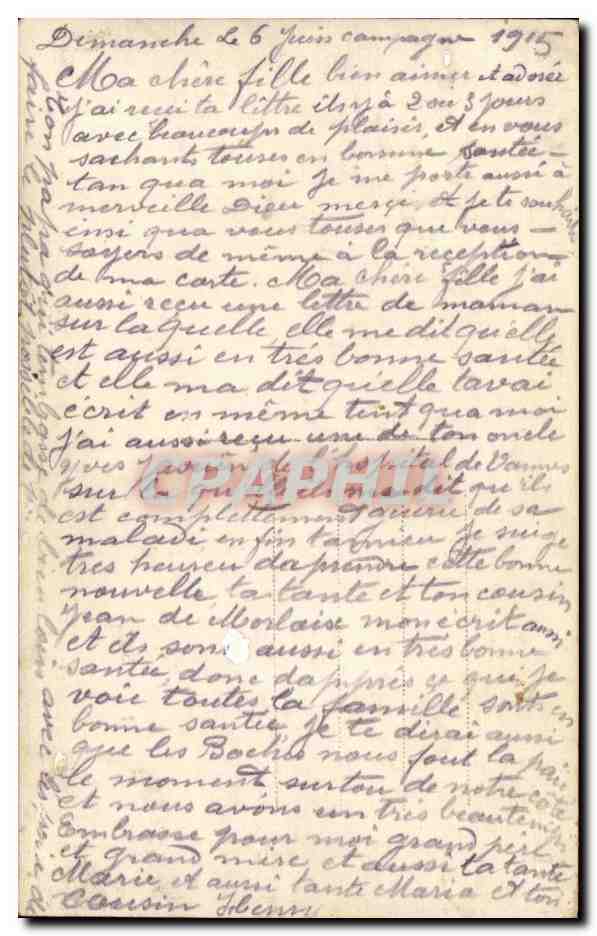 Dimanche Le 6 Juin campagne 1915
Ma chère fille bien aimer et adorée
j'ai recei ta lêttre ils y à 2 ou 3 jours
avec beaucoups de plaisir, et en vous
sachants touses en bonne santée
tan qua moi je me porte aussi à
merveille Dieu merçe, et je te souhaite
einsi qua vous touses que vous
soyers de même à la reception
de ma carte. Ma chére fille j'ai
aussi reçu une lettre de maman
sur laquelle, elle me dit qu'elle
est aussi en trés bonne santée
et elle ma dit qu'elle tavai
écrit en même tent qua moi
j'ai aussi reçu une de ton oncle
yves de l'hospital de Vannes
sur la quelle ils me dit qu'ils
est complettement guerie de sa
maladi en fin tan mieu je suige
tres heureu daprendre cette bonne
nouvelle ta tante et ton cousin
Jean de Morlaix mon écrit aussi
et ils sont aussi en trés bonne
santée, donc dapprés çe que je
voie toutes la famille sont en
bonne santée, je te dirai aussi
que les Boches nous fout la paix
le moment surtou de notre coté
et nous avons un trés beau temp
Embrasse pour moi grand pére
et grand mére et aussi ta tante
Marie, et aussi tante Maria et ton
Cousin Henry
ton papa qui de bien loin avec
faire le plutôt possible
CPARAMA